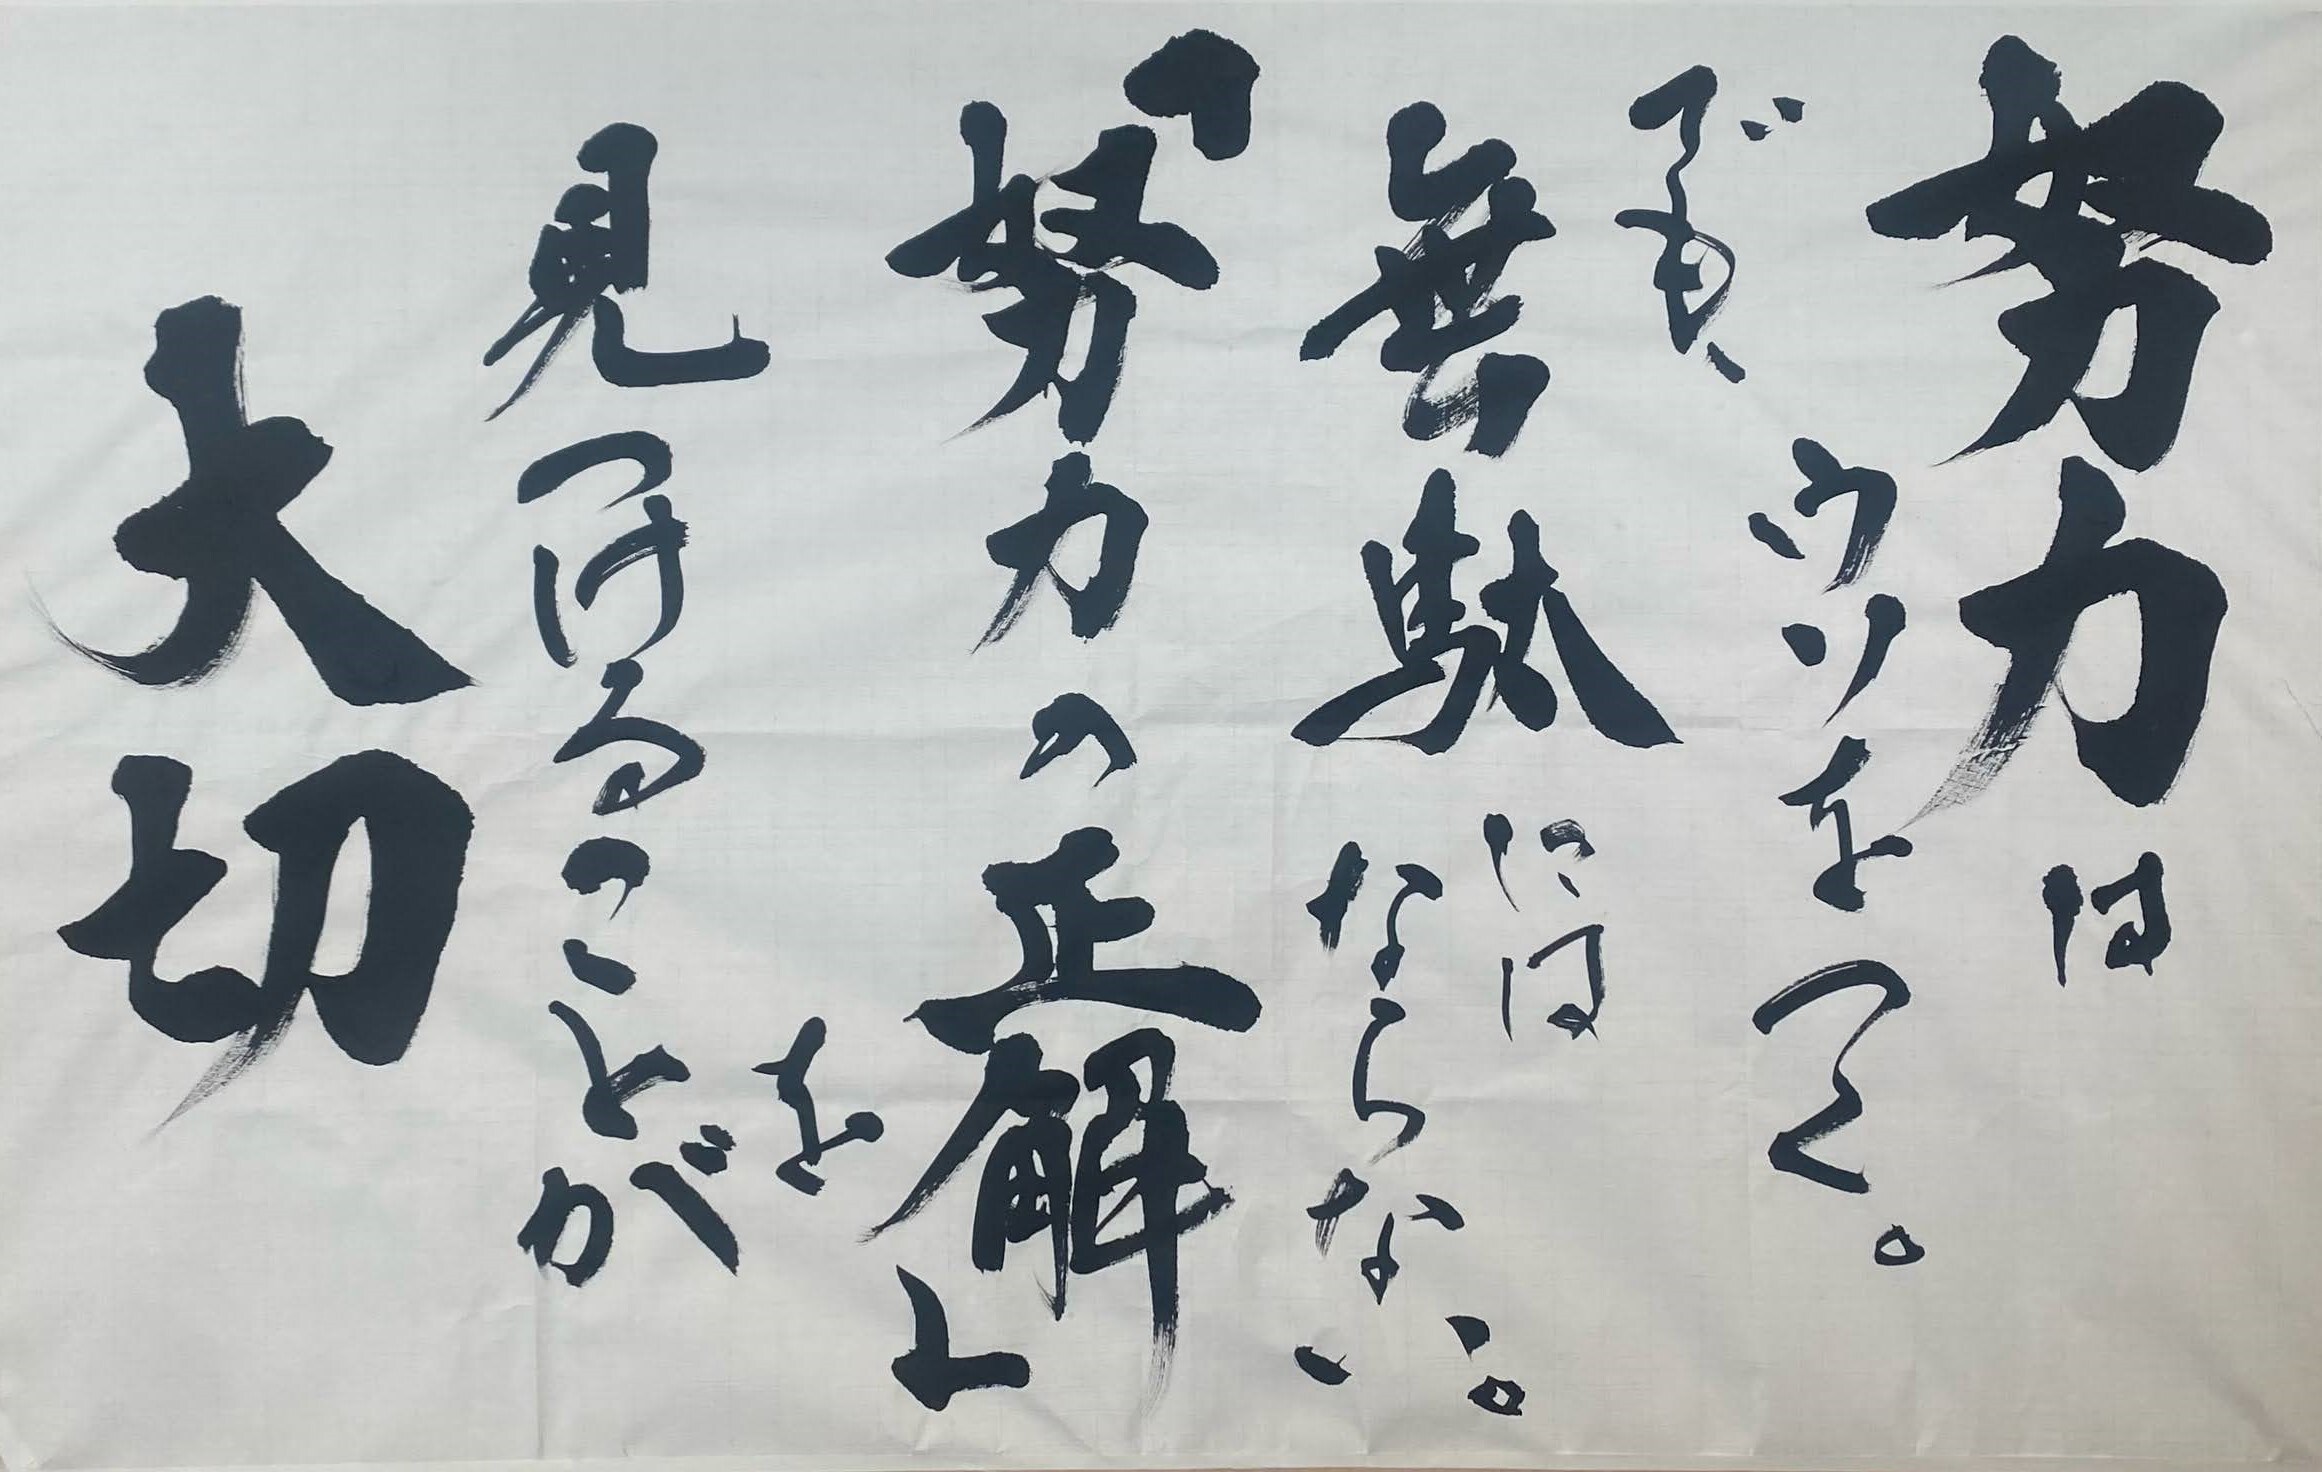 努力は
ウソをつく。
でも、
無駄には
ならない。
「努力の正解」
を
見つけることが
大切